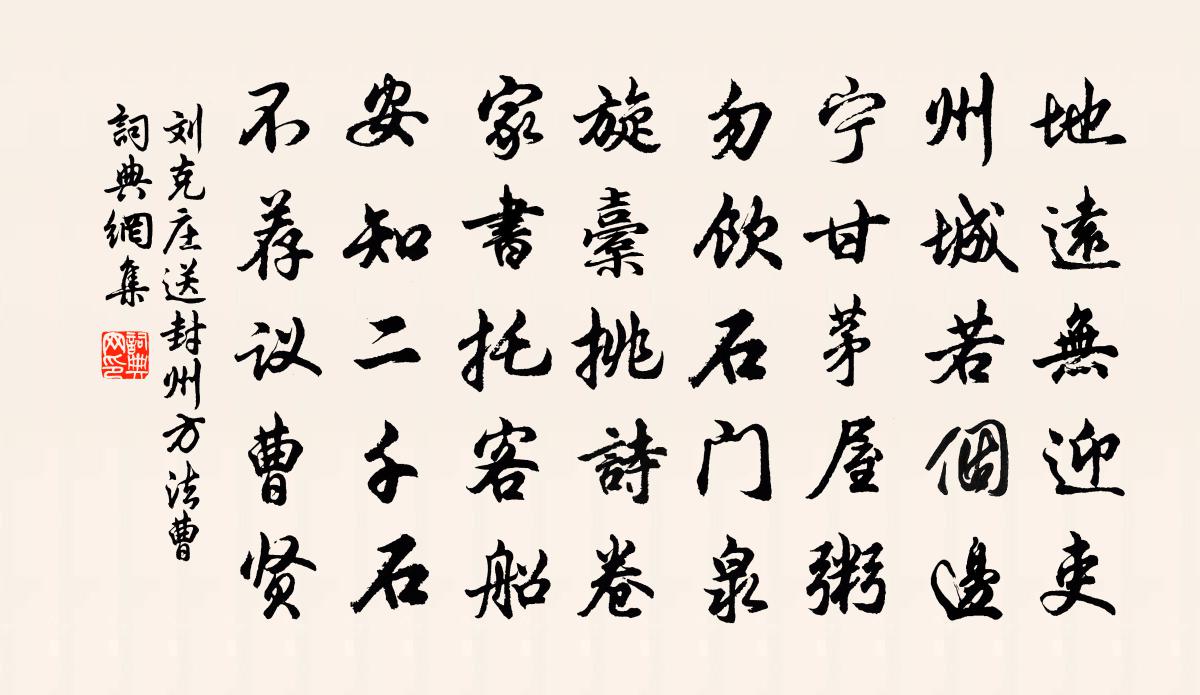 地遠無迎吏
州城若個邊
宁甘茅屋粥
勿飲石门泉
旋橐挑詩卷
家書托客船
安知二千石
不荐议曹贤
刘克庄送封州方法曹
詞典網集
詞典
网印